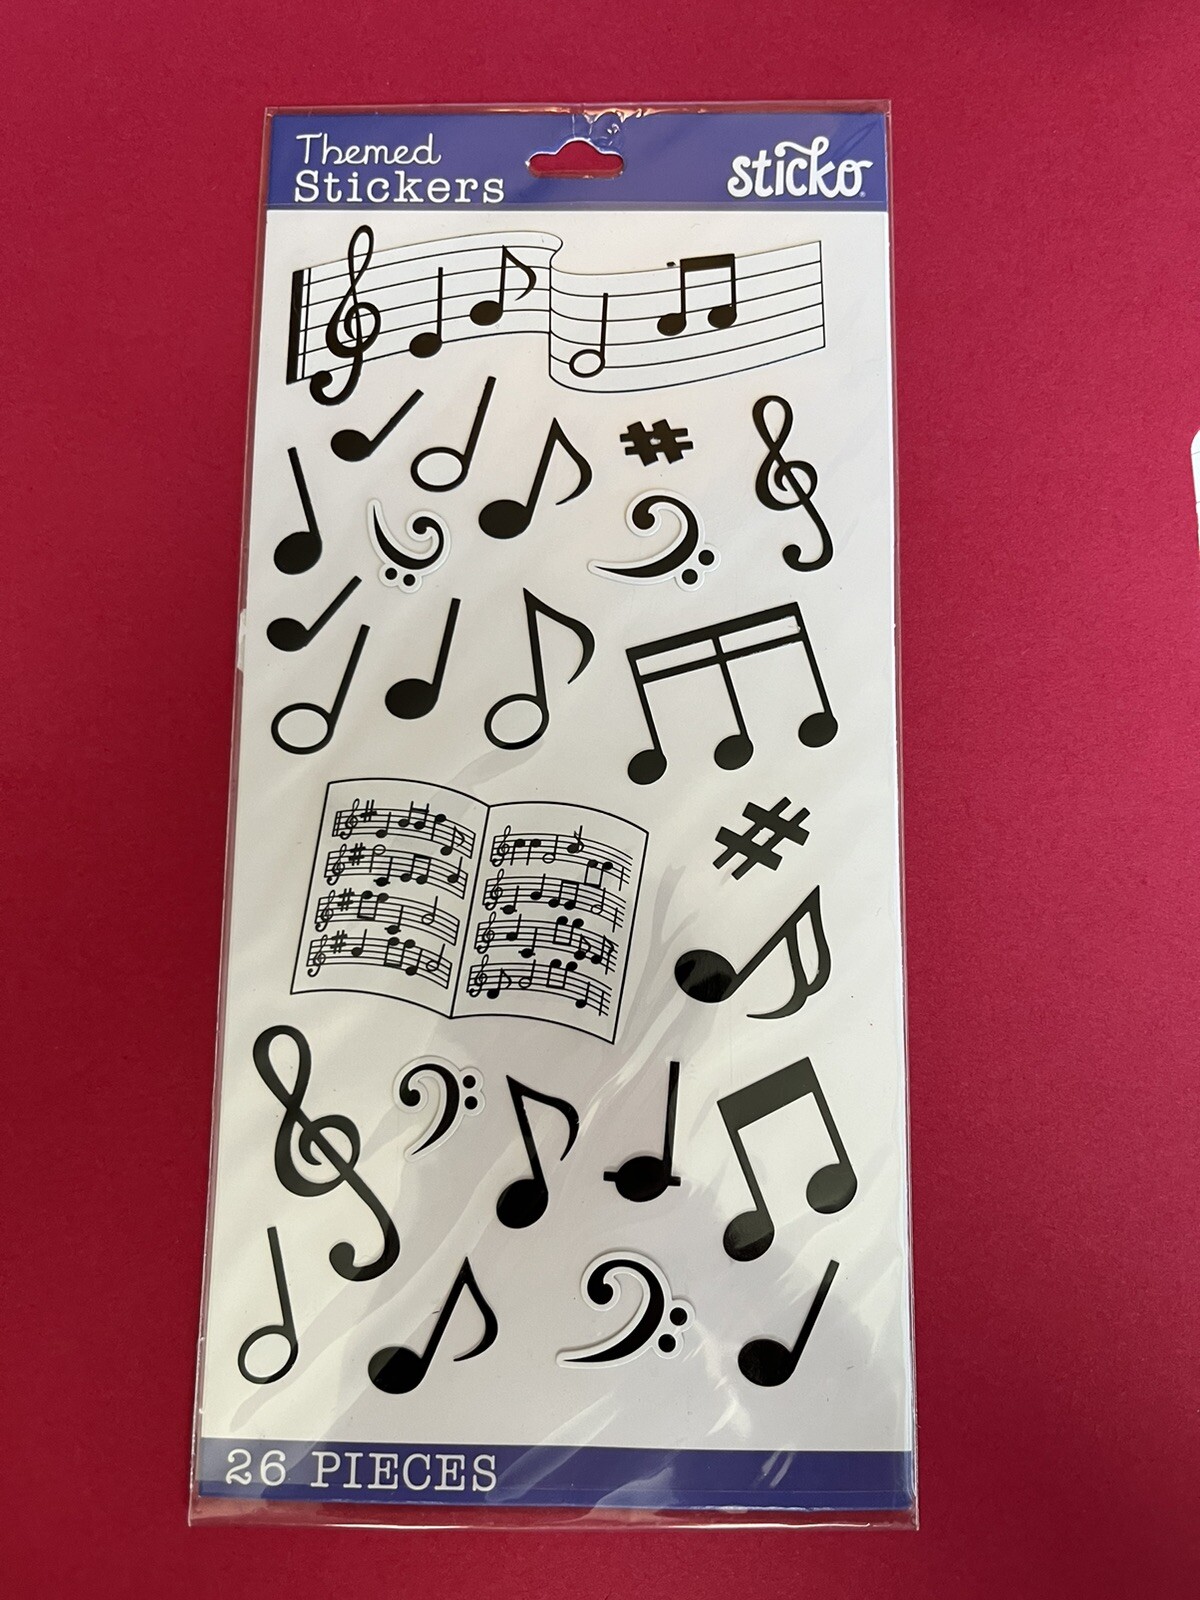 Themed
Stickers
sticko
26 PIECES